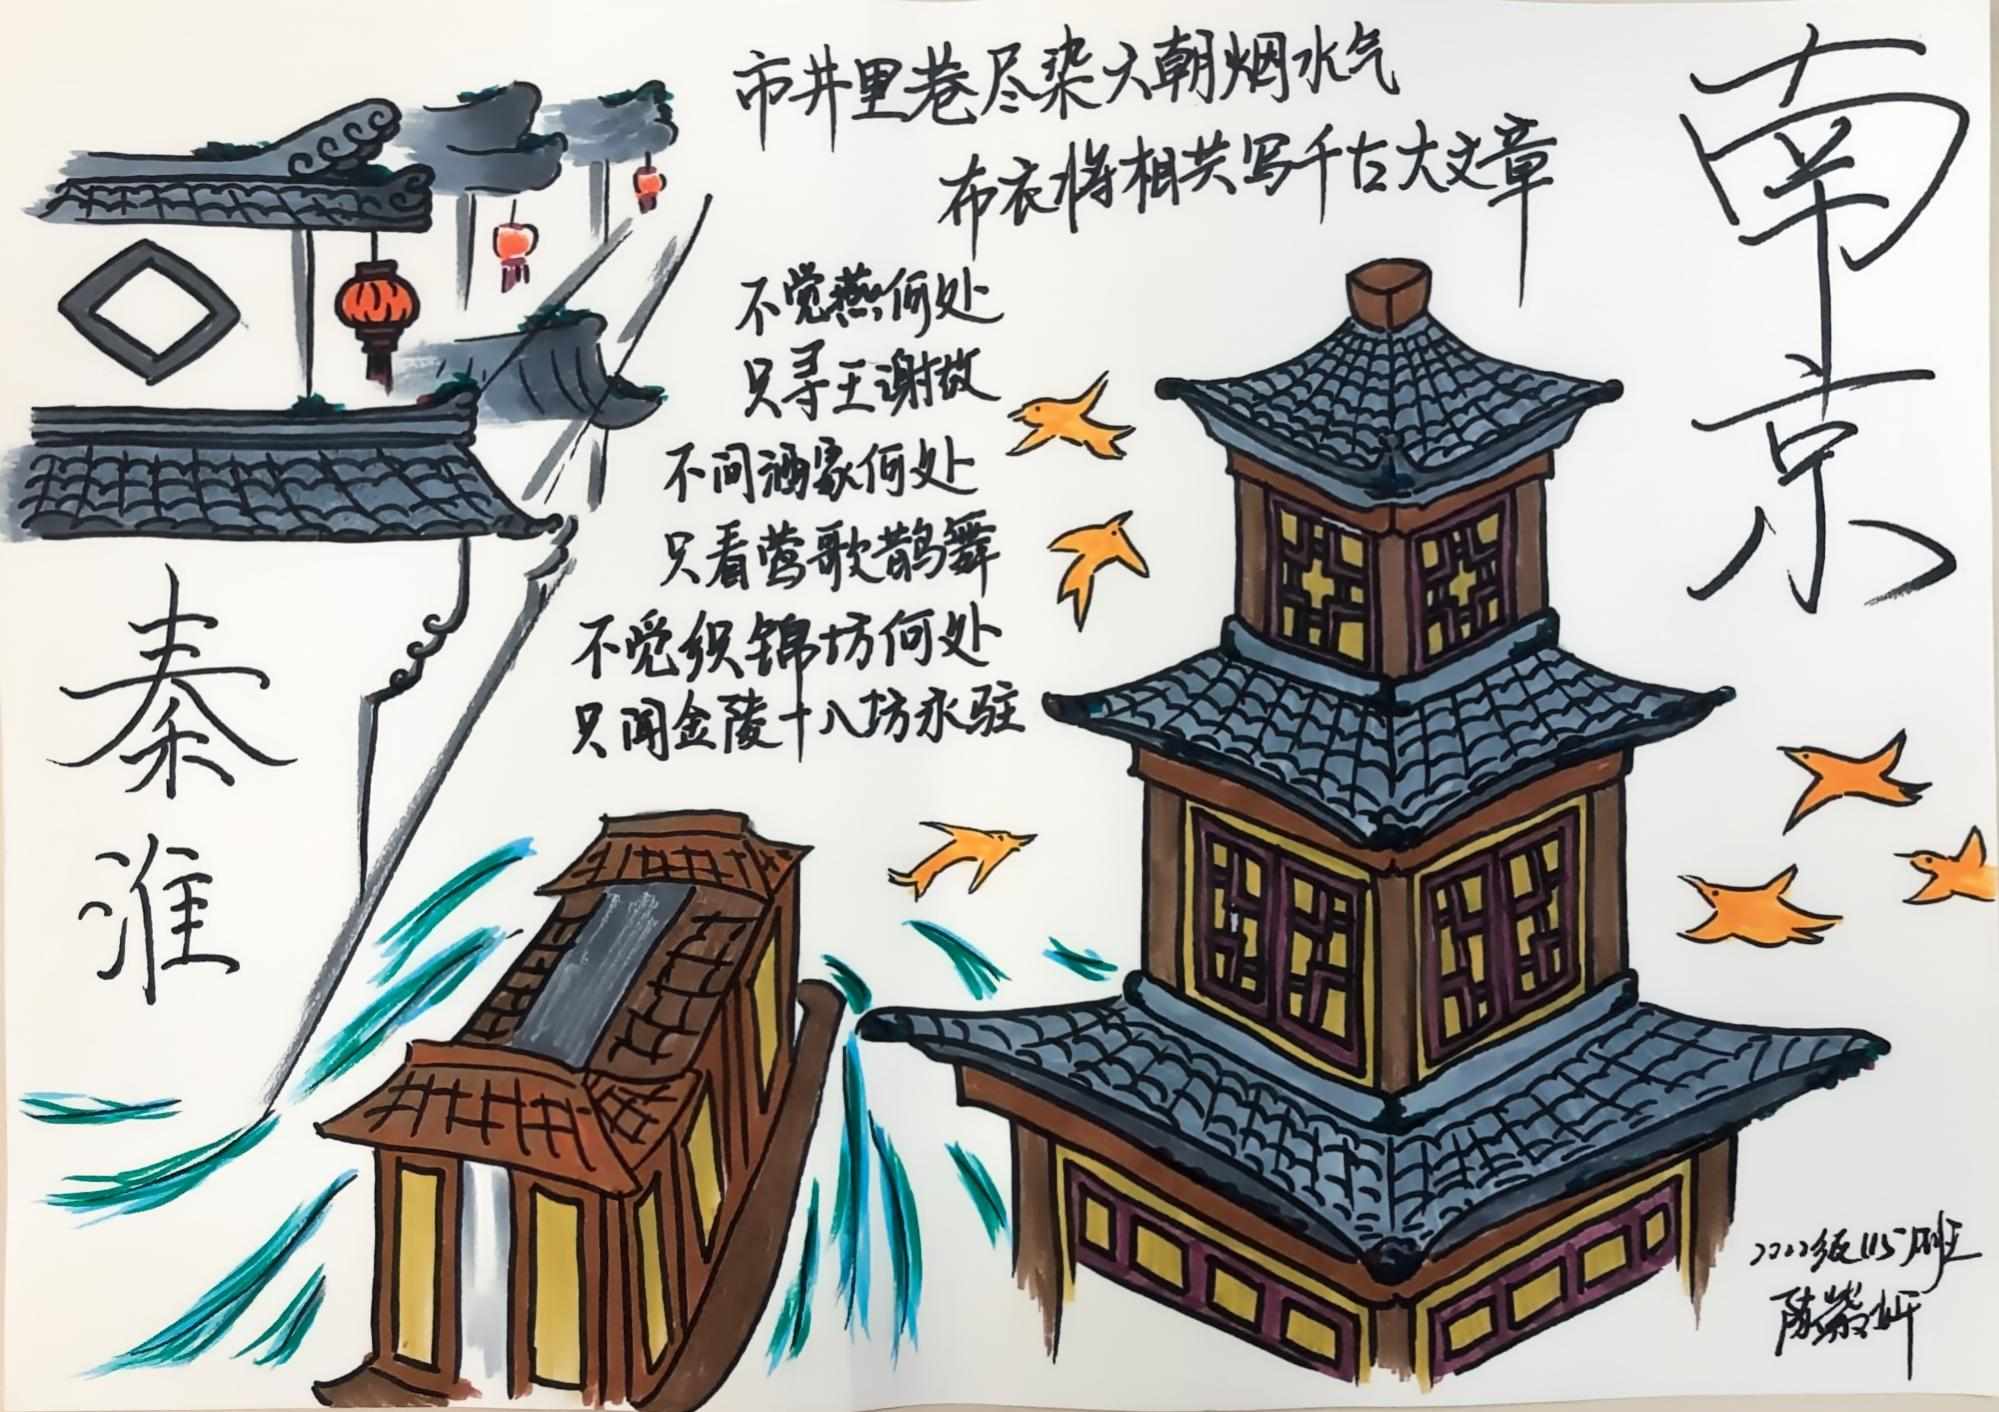 南京
市井里巷尽染六朝烟水气
布衣将相共写千古大文章
不觉燕何处
只寻王谢故
不问酒家何处
只看莺歌鹊舞
不觉织锦坊何处
只闻金陵十八坊永驻
秦淮
2022级115班
陈紫妍